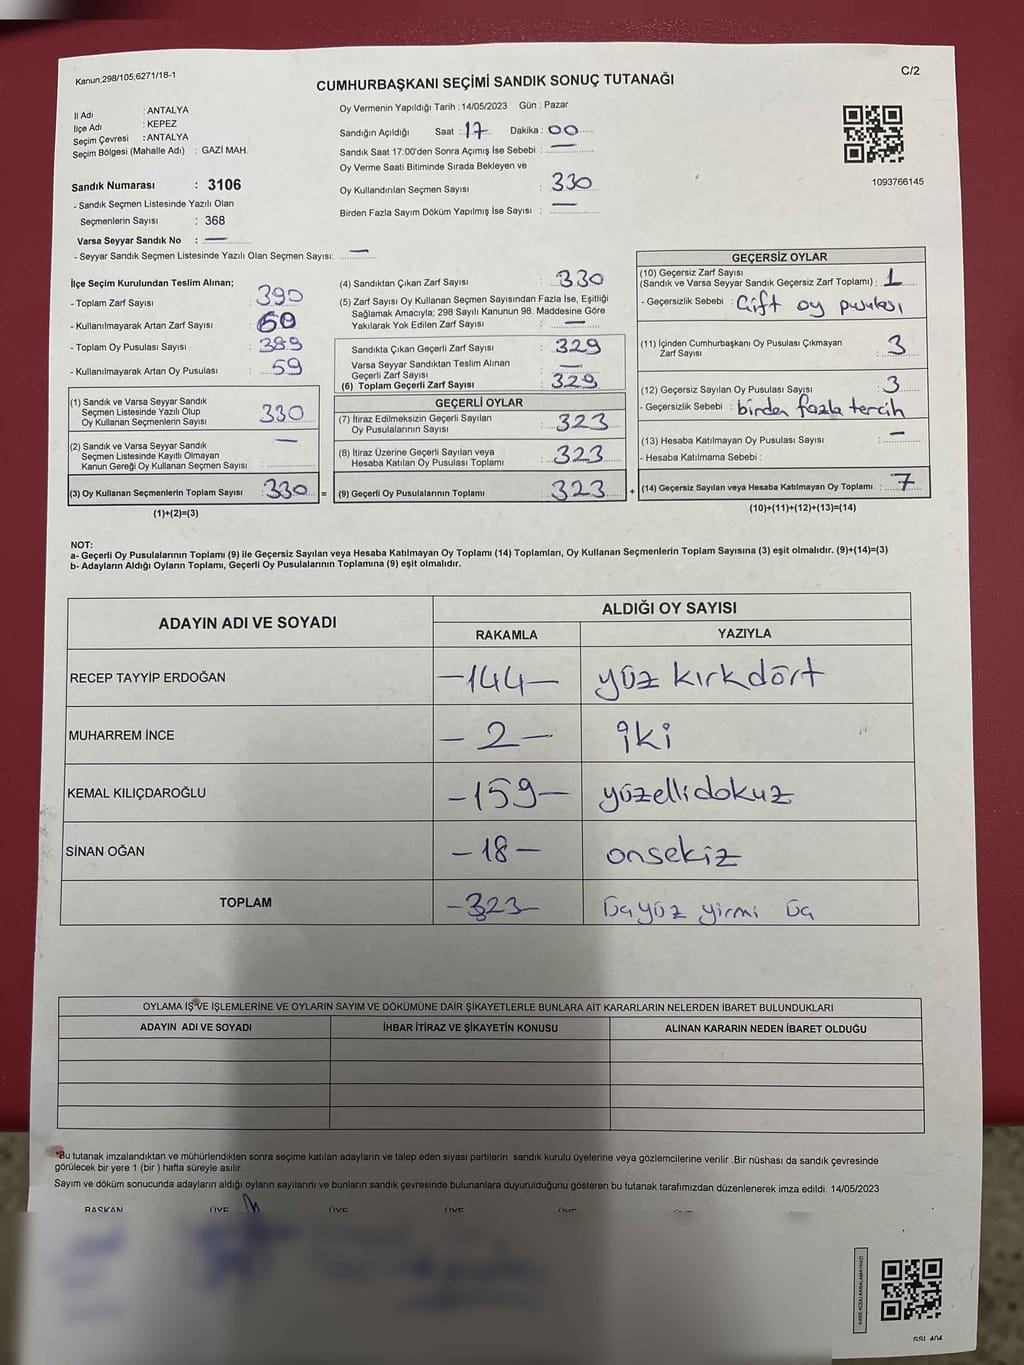 Kanun;298/105;6271/18-1
C/2
CUMHURBAŞKANI SEÇİMİ SANDIK SONUÇ TUTANAĞI
İl Adı : ANTALYA
İlçe Adı : KEPEZ
Seçim Çevresi : ANTALYA
Seçim Bölgesi (Mahalle Adı) : GAZİ MAH.
Oy Vermenin Yapıldığı Tarih : 14/05/2023 Gün : Pazar
Sandığın Açıldığı Saat : 17 Dakika : 00
Sandık Saat 17:00'den Sonra Açımış İse Sebebi : —
Oy Verme Saati Bitiminde Sırada Bekleyen ve
Oy Kullandırılan Seçmen Sayısı : 330
Birden Fazla Sayım Döküm Yapılmış İse Sayısı : —
1093766145
Sandık Numarası : 3106
- Sandık Seçmen Listesinde Yazılı Olan
Seçmenlerin Sayısı : 368
Varsa Seyyar Sandık No : —
- Seyyar Sandık Seçmen Listesinde Yazılı Olan Seçmen Sayısı: —
İlçe Seçim Kurulundan Teslim Alınan;
- Toplam Zarf Sayısı : 390
- Kullanılmayarak Artan Zarf Sayısı : 60
- Toplam Oy Pusulası Sayısı : 389
- Kullanılmayarak Artan Oy Pusulası : 59
(1) Sandık ve Varsa Seyyar Sandık
Seçmen Listesinde Yazılı Olup
Oy Kullanan Seçmenlerin Sayısı : 330
(2) Sandık ve Varsa Seyyar Sandık
Seçmen Listesinde Kayıtlı Olmayan
Kanun Gereği Oy Kullanan Seçmen Sayısı : —
(3) Oy Kullanan Seçmenlerin Toplam Sayısı : 330 =
(1)+(2)=(3)
(4) Sandıktan Çıkan Zarf Sayısı : 330
(5) Zarf Sayısı Oy Kullanan Seçmen Sayısından Fazla İse, Eşitliği
Sağlamak Amacıyla; 298 Sayılı Kanunun 98. Maddesine Göre
Yakılarak Yok Edilen Zarf Sayısı : —
Sandıkta Çıkan Geçerli Zarf Sayısı : 329
Varsa Seyyar Sandıktan Teslim Alınan
Geçerli Zarf Sayısı : —
(6) Toplam Geçerli Zarf Sayısı : 329
GEÇERLİ OYLAR
(7) İtiraz Edilmeksizin Geçerli Sayılan
Oy Pusulalarının Sayısı : 323
(8) İtiraz Üzerine Geçerli Sayılan veya
Hesaba Katılan Oy Pusulası Toplamı : 323
(9) Geçerli Oy Pusulalarının Toplamı : 323 +
GEÇERSİZ OYLAR
(10) Geçersiz Zarf Sayısı
(Sandık ve Varsa Seyyar Sandık Geçersiz Zarf Toplamı) : 1
- Geçersizlik Sebebi : Çift oy pusulası
(11) İçinden Cumhurbaşkanı Oy Pusulası Çıkmayan
Zarf Sayısı : 3
(12) Geçersiz Sayılan Oy Pusulası Sayısı : 3
- Geçersizlik Sebebi : birden fazla tercih
(13) Hesaba Katılmayan Oy Pusulası Sayısı : —
- Hesaba Katılmama Sebebi :
(14) Geçersiz Sayılan veya Hesaba Katılmayan Oy Toplamı : 7
(10)+(11)+(12)+(13)=(14)
NOT:
a- Geçerli Oy Pusulalarının Toplamı (9) ile Geçersiz Sayılan veya Hesaba Katılmayan Oy Toplamı (14) Toplamları, Oy Kullanan Seçmenlerin Toplam Sayısına (3) eşit olmalıdır. (9)+(14)=(3)
b- Adayların Aldığı Oyların Toplamı, Geçerli Oy Pusulalarının Toplamına (9) eşit olmalıdır.
ADAYIN ADI VE SOYADI
ALDIĞI OY SAYISI
RAKAMLA YAZIYLA
RECEP TAYYİP ERDOĞAN -144- yüz kırkdört
MUHARREM İNCE -2- iki
KEMAL KILIÇDAROĞLU -159- yüzellidokuz
SİNAN OĞAN -18- onsekiz
TOPLAM -323- üçyüz yirmi üç
OYLAMA İŞ VE İŞLEMLERİNE VE OYLARIN SAYIM VE DÖKÜMÜNE DAİR ŞİKAYETLERLE BUNLARA AİT KARARLARIN NELERDEN İBARET BULUNDUKLARI
ADAYIN ADI VE SOYADI İHBAR İTİRAZ VE ŞİKAYETİN KONUSU ALINAN KARARIN NEDEN İBARET OLDUĞU
*Bu tutanak imzalandıktan ve mühürlendikten sonra seçime katılan adayların ve talep eden siyasi partilerin sandık kurulu üyelerine veya gözlemcilerine verilir .Bir nüshası da sandık çevresinde
görülecek bir yere 1 (bir ) hafta süreyle asılır.
Sayım ve döküm sonucunda adayların aldığı oyların sayılarını ve bunların sandık çevresinde bulunanlara duyurulduğunu gösteren bu tutanak tarafımızdan düzenlenerek imza edildi. 14/05/2023
BAŞKAN ÜYE ÜYE ÜYE ÜYE